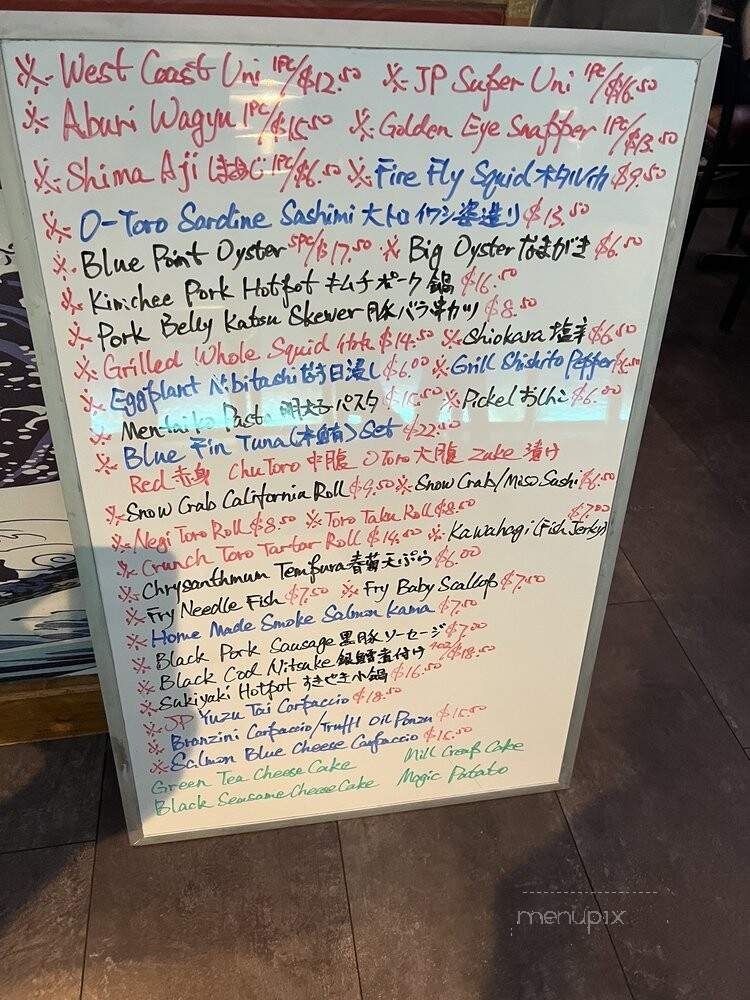 ※ West Coast Uni 1PC/$12.50 ※ JP Super Uni 1PC/$16.50
※ Aburi Wagyu 1PC/$15.50 ※ Golden Eye Snapper 1PC/$13.50
※ Shima Aji しまあじ 1PC/$6.50 ※ Fire Fly Squid ホタルイカ $9.50
※ O-Toro Sardine Sashimi 大トロイワシ姿造り $13.50
※ Blue Point Oyster 5PC/$17.50 ※ Big Oyster なまがき $6.50
※ Kimchee Pork Hotpot キムチポーク鍋 $16.50
※ Pork Belly Katsu Skewer 豚バラ串カツ $8.50
※ Grilled Whole Squid イカ $14.50 ※ Shiokara 塩辛 $6.50
※ Eggplant Nibitashi なす日浸し $6.00 ※ Grill Shishito Pepper
※ Mentaiko Pasta 明太子パスタ $15.50 ※ Pickel おしんこ $6.00
※ Blue Fin Tuna (本鮪) Set $22.50
Red 赤身 ChuToro 中腹 OToro 大腹 Zuke 漬け
※ Snow Crab California Roll $9.50 ※ Snow Crab/Miso Sashi $6.50
※ Negi Toro Roll $8.50 ※ Toro Taku Roll $8.50
※ Crunch Toro Tartar Roll $14.50 ※ Kawahagi (Fish Jerky) $7.00
※ Chrysanthmum Tempura 春菊天ぷら $6.00
※ Fry Needle Fish $7.50 ※ Fry Baby Scallop $7.50
※ Home Made Smoke Salmon Kama $7.50
※ Black Pork Sausage 黒豚ソーセージ $7.00
※ Black Cod Nitsuke 銀鱈煮付け $18.50
※ Sukiyaki Hotpot すきやき小鍋 $16.50
※ JP Yuzu Tai Carpaccio $18.50
※ Branzini Carpaccio/Truffl Oil Ponzu $15.50
※ Salmon Blue Cheese Carpaccio $15.50
Green Tea Cheese Cake Mill Creap Cake
Black Seasame Cheese Cake Magic Potato
menupix